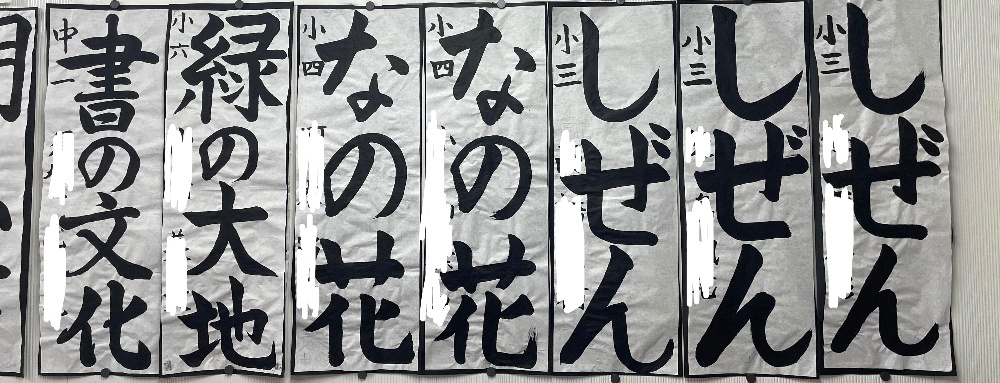 しぜん
小三
しぜん
小三
しぜん
小三
なの花
小四
なの花
小四
緑の大地
小六
書の文化
中一